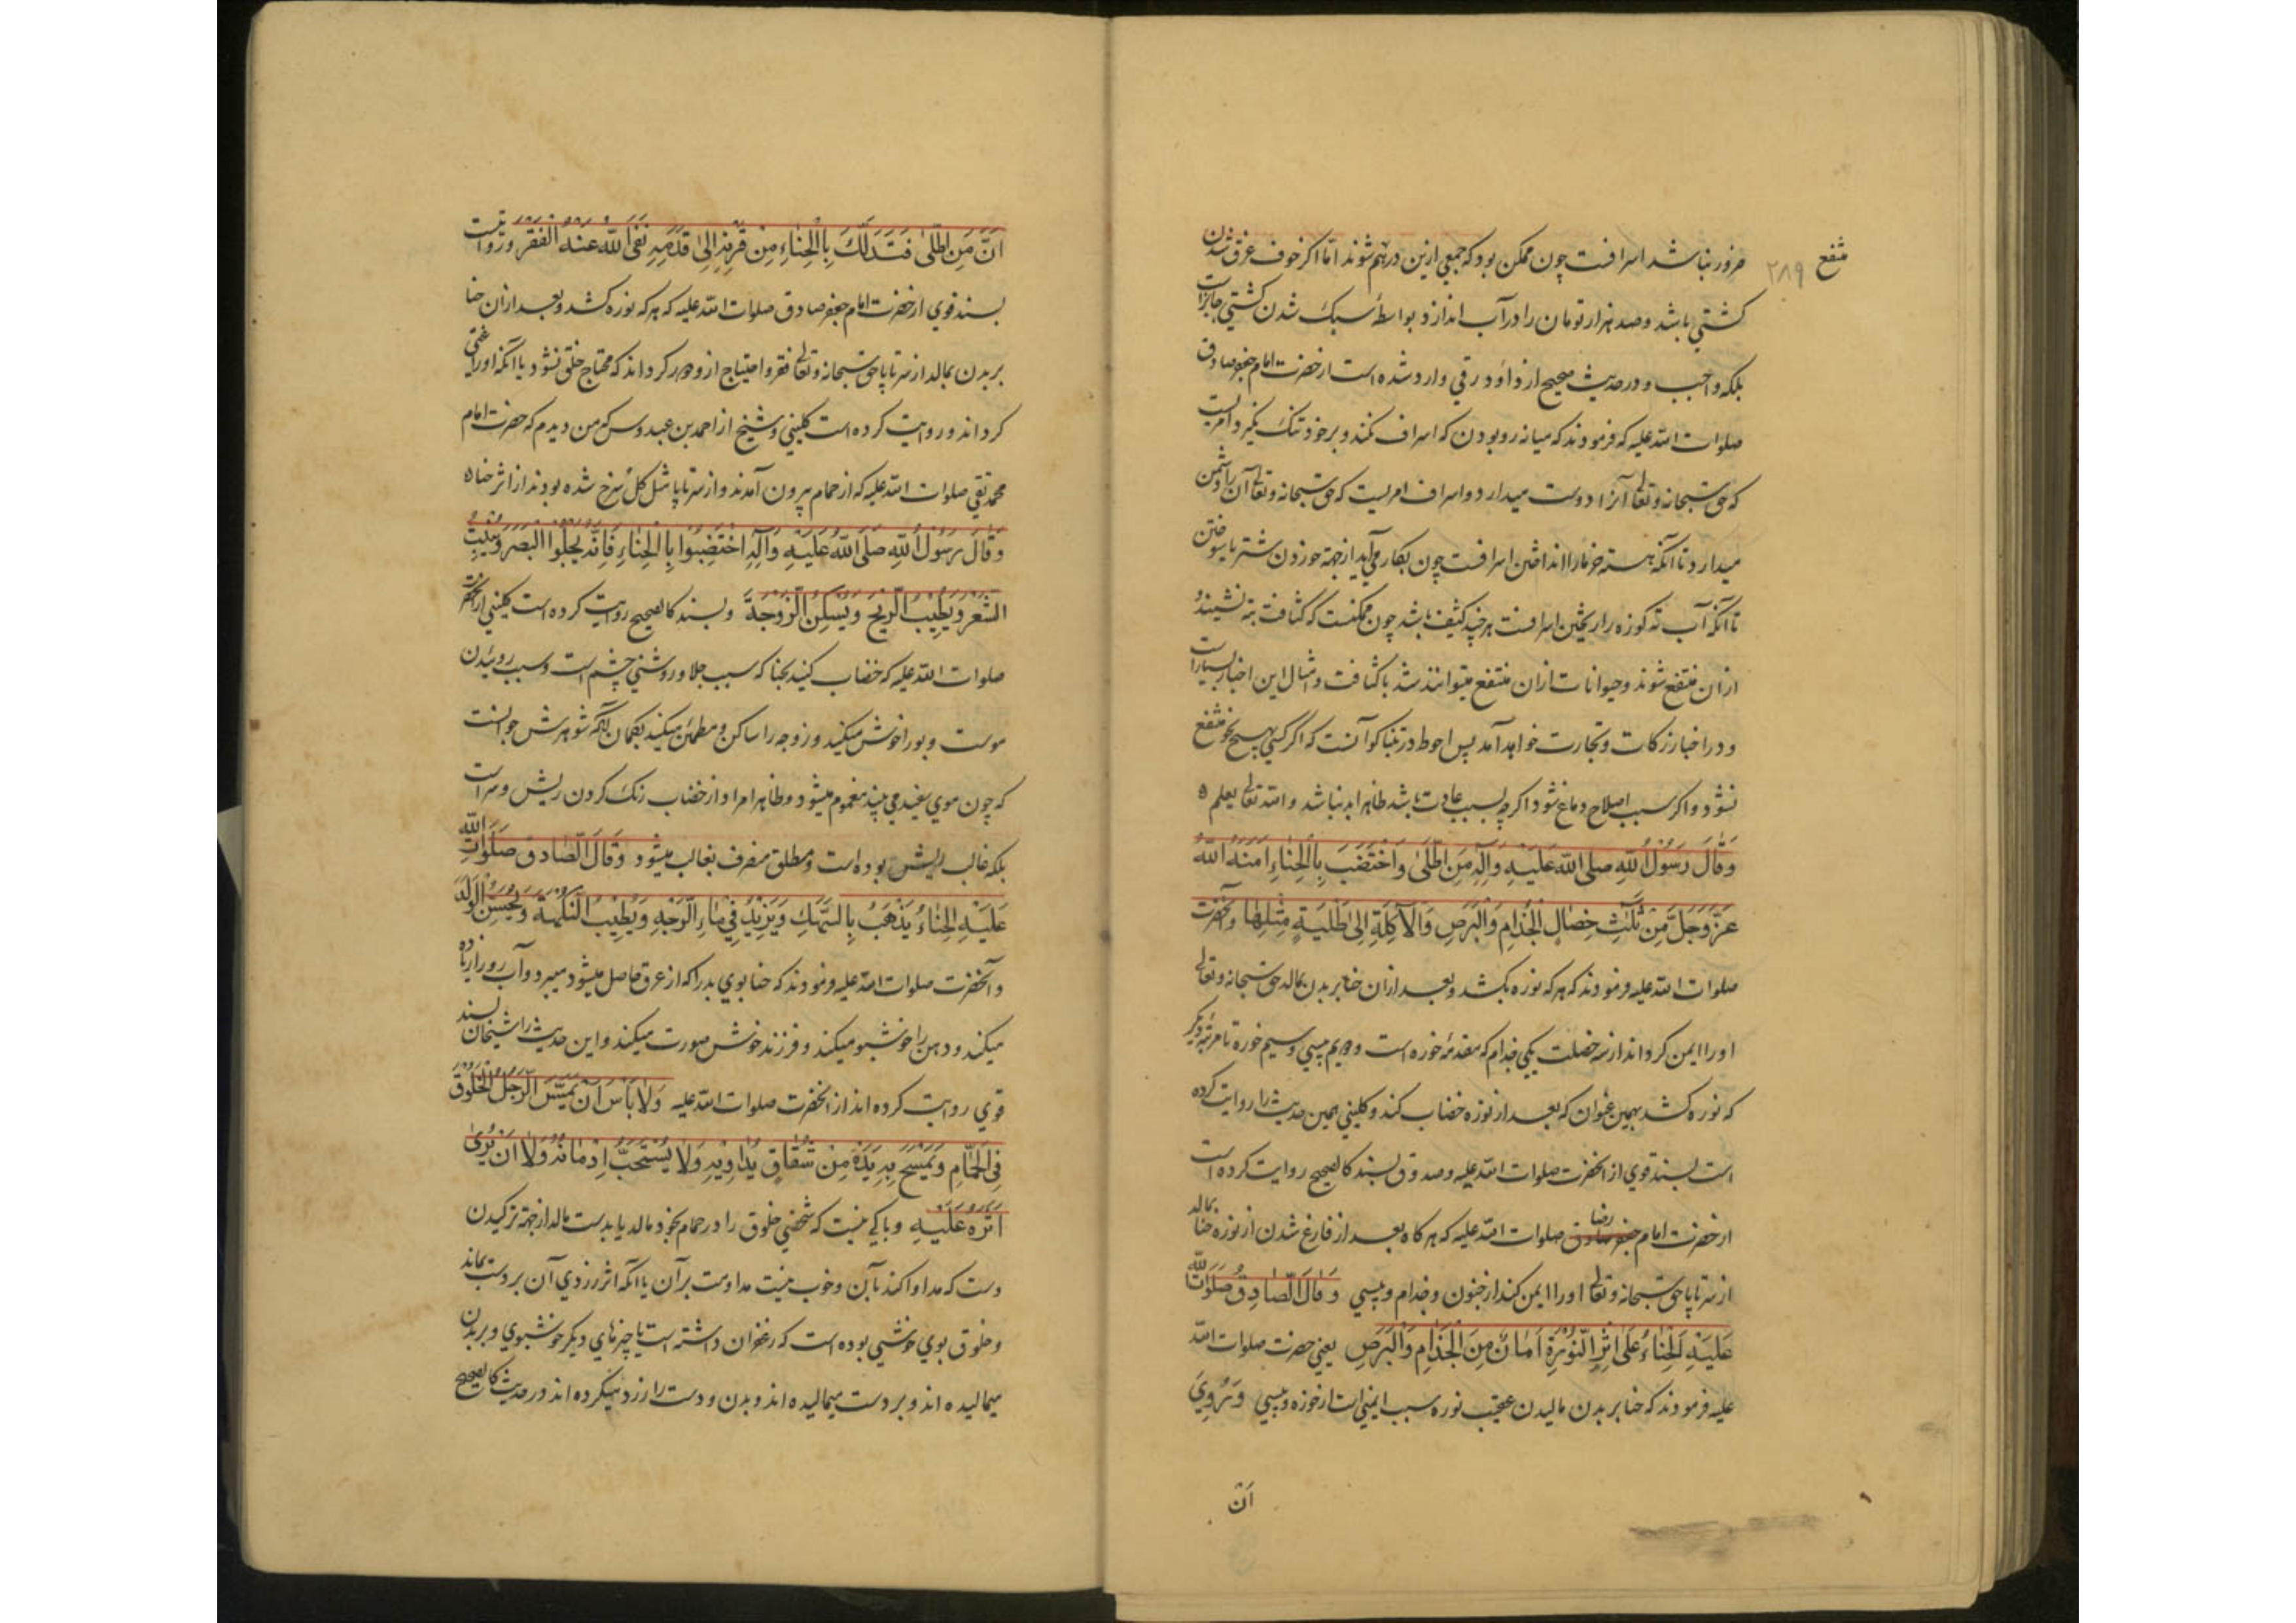 منتفع
۲۸۹
ضرور نباشد اسرافست چون ممکن بود که جمعی ازین درهم شوند اما اکر خوف غرق شدن
کشتی باشد و صد هزار تومان را در آب اندازد بواسطهٔ سبک شدن کشتی جایزاست
بلکه واجب و در حدیث صحیح از داود رقی وارد شده است از حضرت امام جعفر صادق
صلوات الله علیه که فرمودند که میانه رو بودن که اسراف نکند و برخود تنک نکیرد امریست
که حق سبحانه و تعالی آنرا دوست میدارد و اسراف امریست که حق سبحانه و تعالی آن را دشمن
میدارد تا آنکه هسته خرما را انداختن اسرافست چون بکار می آید از جهة خوردن شتر یا سوختن
تا آنکه آب ته کوزه را ریختن اسرافست هرچند کثیف باشد چون ممکنست که کثافت ته نشیند و
ازان منتفع شوند و حیوانات ازان منتفع میتوانند شد با کثافت و امثال این اخبار بسیار است
و در اخبار زکات و تجارت خواهد آمد پس احوط در تنباکو آنست که اکر کسی بهیچ نحو منتفع
نشود و اکر سبب اصلاح دماغ شود اکرچه بسبب عادت باشد ظاهرا بد نباشد و الله تعالی یعلم ه
وَقَالَ رَسُولُ اللّهِ صلی الله عَلَیْهِ وَآلِهِ مَنِ اطَّلَی وَاخْتَضَبَ بِالْحِنَّاءِ آمَنَهُ اللّهُ
عَزَّوَجَلَّ مِنْ ثَلٰثِ خِصَالٍ الْجُذَامِ وَالْبَرَصِ وَالْآکِلَةِ اِلیٰ طَلْیَةٍ مِثْلِهَا و آنحضرت
صلوات الله علیه فرمودند که هرکه نوره بکشد و بعد ازان حنا بر بدن بمالد حق سبحانه و تعالی
او را ایمن کرداند از سه خصلت یکی جذام که مقدمهٔ خوره است و دویم پیسی و سیم خوره تا مرتبهٔ دیکر
که نوره کشد بهمین عنوان که بعد از نوره خضاب کند و کلینی همین حدیث را روایت کرده
است بسند قوی از آنحضرت صلوات الله علیه و صدوق بسند کالصحیح روایت کرده است
از حضرت امام جعفر صادق رضا صلوات الله علیه که هرکاه بعد از فارغ شدن از نوره حنا بمالد
از سر تا پا حق سبحانه و تعالی او را ایمن کند از جنون و جذام و پیسی وَقَالَ الصَّادِقُ صَلَوَاتُ اللّهِ
عَلَیْهِ الْحِنَّاءُ عَلَی اَثَرِ النُّورَةِ اَمَانٌ مِنَ الْجُذَامِ وَالْبَرَصِ یعنی حضرت صلوات الله
علیه فرمودند که حنا بر بدن مالیدن عقیب نوره سبب ایمنی است از خوره و پیسی وَرُوِیَ
اَنَّ
اَنَّ مَنِ اطَّلیٰ فَتَدَلَّکَ بِالْحِنَّاءِ مِنْ قَرْنِهِ اِلیٰ قَدَمِهِ نَفَی اللّهُ عَنْهُ الْفَقْرَ و روایتست
بسند قوی از حضرت امام جعفر صادق صلوات الله علیه که هرکه نوره کشد و بعد ازان حنا
بر بدن بمالد از سر تا پا حق سبحانه و تعالی فقر و احتیاج ازو دور کرداند که محتاج خلق نشود یا آنکه او را غنی
کرداند و روایت کرده است کلینی و شیخ از احمد بن عبدوس که من دیدم که حضرت امام
محمد تقی صلوات الله علیه که از حمام بیرون آمدند و از سر تا پا مثل کل سرخ شده بودند از اثر حنا ه
وَقَالَ رَسُولُ اللّهِ صَلَّی اللّهُ عَلَیْهِ وَآلِهِ اخْتَضِبُوا بِالْحِنَّاءِ فَاِنَّهُ یَجْلُوا الْبَصَرَ وَیُنْبِتُ
الشَّعْرَ وَیُطَیِّبُ الرِّیحَ وَیُسَکِّنُ الزَّوْجَةَ و بسند کالصحیح روایت کرده است کلینی از آنحضرت
صلوات الله علیه که خضاب کنید بحنا که سبب جلا و روشنی چشم است و سبب روییدن
موست و بو را خوش میکند و زوجه را ساکن و مطمئن میکند بکمان آنکه شوهرش جوانست
که چون موی سفید می بیند مغموم میشود و ظاهرا مراد از خضاب رنک کردن ریش و سر است
بلکه غالب ریش بوده است و مطلق منصرف بغالب میشود وَقَالَ الصَّادق صَلَوَاتُ اللّهِ
عَلَیْهِ الْحِنَّاءُ یَذْهَبُ بِالسَّهَکِ وَیَزِیدُ فِی مَاءِ الْوَجْهِ وَیُطَیِّبُ النَّکْهَةَ وَیُحَسِّنُ الْوَلَدَ
و آنحضرت صلوات الله علیه فرمودند که حنا بوی بد را که از عرق حاصل میشود میبرد و آب رو را زیاده
میکند و دهن را خوشبو میکند و فرزند خوش صورت میکند و این حدیث را شیخان بسند
قوی روایت کرده اند از آنحضرت صلوات الله علیه وَلَا بَأْسَ اَنْ یَمَسَّ الرَّجُلُ الْخَلُوقَ
فِی الْحَمَّامِ وَیَمْسَحَ بِهِ یَدَهُ مِنْ شُقَاقٍ یُدَاوِیهِ وَلَا یُسْتَحَبُّ اِدْمَانُهُ وَلَا اَنْ یُرَیٰ
اَثَرُهُ عَلَیْهِ و باکی نیست که شخصی خلوق را در حمام بخود مالد یا بدست مالد از جهة ترکیدن
دست که مداوا کند بآن و خوب نیست مداومت بر آن یا آنکه اثر زردی آن بر دست بماند
و خلوق بوی خوشی بوده است که زعفران داشته است با چیزهای دیکر خوشبوی و بر بدن
میمالیده اند و بر دست میمالیده اند و بدن و دست را زرد میکرده اند در حدیث کالصحیح